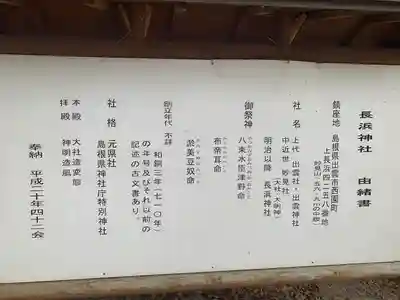 長浜神社　由緒書
鎮座地　島根県出雲市西園町
上長浜四二五八番地
社名　上代　出雲社・出雲神社
（大社・大明神）
中近世　妙見社
明治以降　長浜神社
御祭神
八束水臣津野命
布帝耳命
淤美豆奴命
創立年代　不詳
和銅三年（七一〇年）
の年号及びそれ以前の
記述の古文書あり。
社格　元県社
島根県神社庁特別神社
本殿　大社造変態
拝殿　神明造風
奉納　平成二十年四十二会